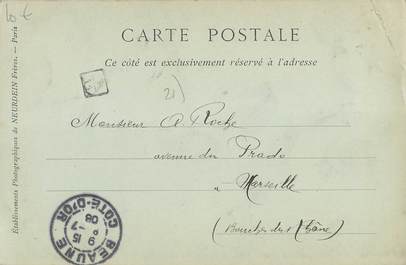 10 €
CARTE POSTALE
Ce côté est exclusivement réservé à l'adresse
21)
Monsieur A. Roche
avenue du Prado
à Marseille
(Bouches du Rhône)
BEAUNE
9 15
-7
08
COTE-D'OR
Établissements Photographiques de NEURDEIN Frères. — Paris